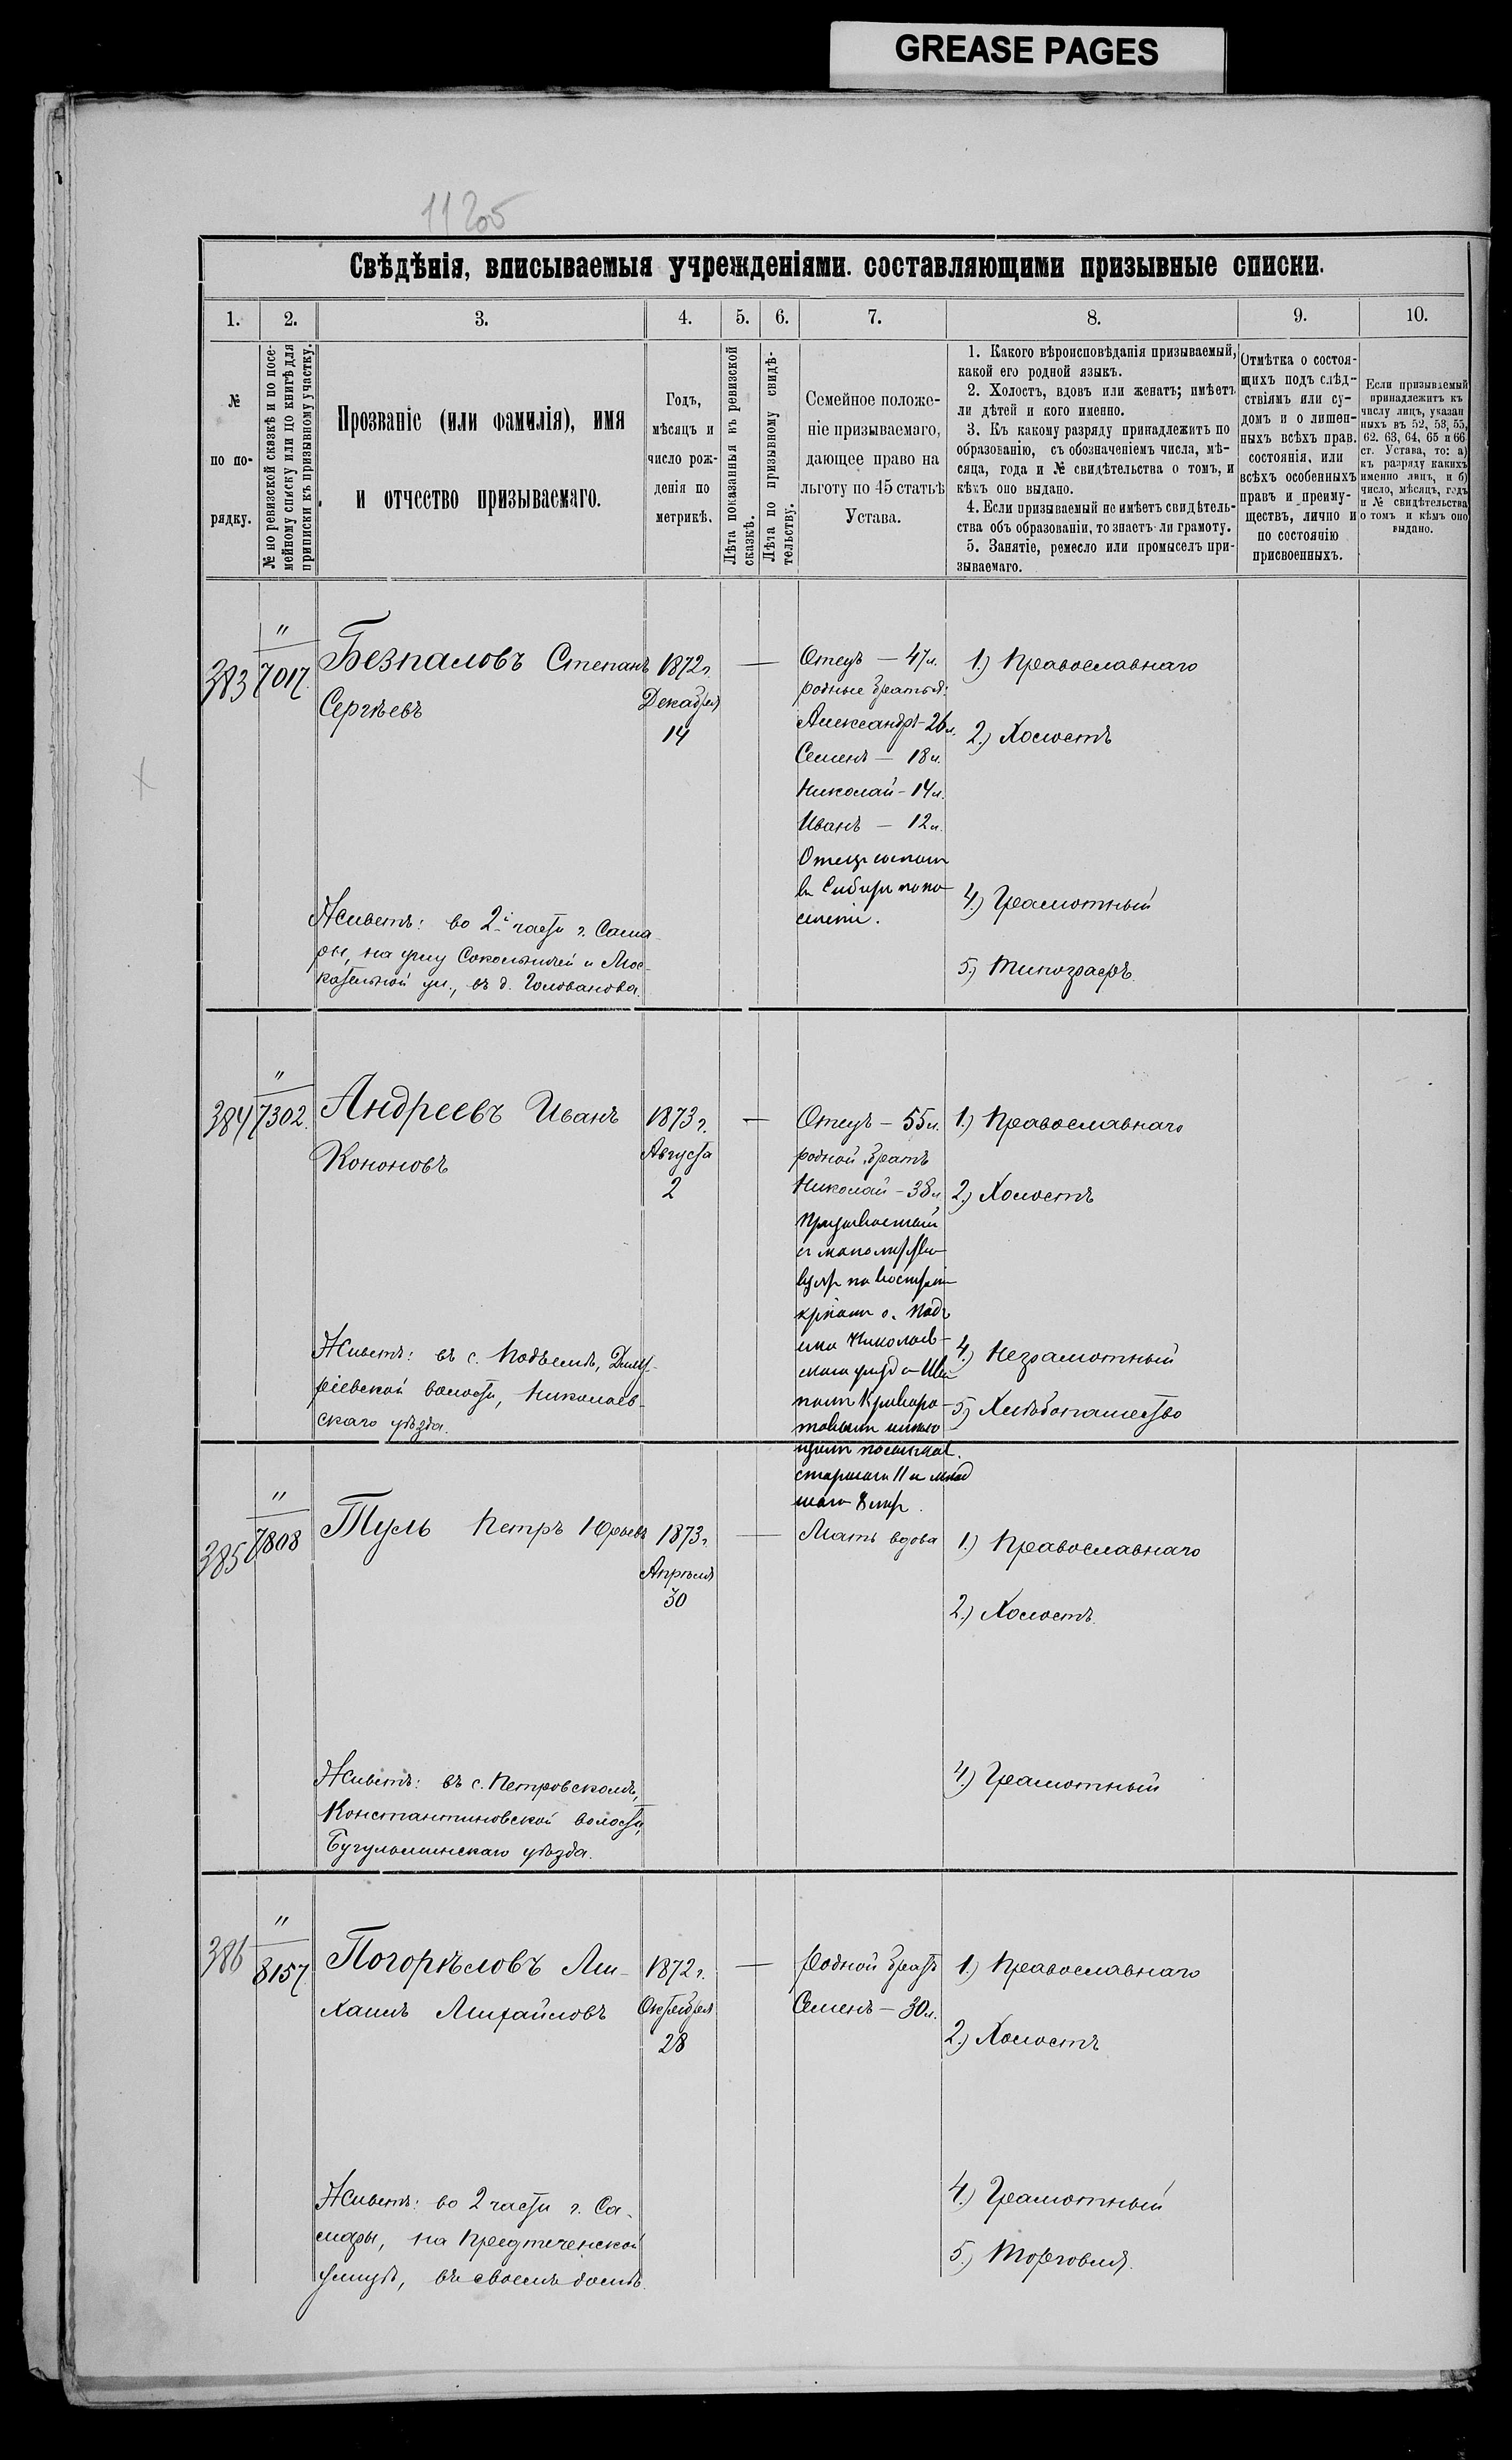 GREASE PAGES
1120
Свѣдѣнія, вписываемыя учрежденіями. составляющими призывные списки.
1.
2.
3.
4.
5.
6.
7.
8.
9.
10.
№
по по-
рядку.
№ по ревизской сказкѣ и по посе-
мейному списку или по книгѣ для
приписки къ призывному участку.
Прозваніе (или фамилія), имя
и отчество призываемаго.
Годъ,
мѣсяцъ и
число рож-
денія по
метрикѣ.
Лѣта показанныя въ ревизской
сказкѣ.
Лѣта по призывному свидѣ-
тельству.
Семейное положе-
ніе призываемаго,
дающее право на
льготу по 45 статьѣ
Устава.
1. Какого вѣроисповѣданія призываемый,
какой его родной языкъ.
2. Холостъ, вдовъ или женатъ; имѣетъ
ли дѣтей и кого именно.
3. Къ какому разряду принадлежитъ по
образованію, съ обозначеніемъ числа, мѣ-
сяца, года и № свидѣтельства о томъ, и
кѣмъ оно выдано.
4. Если призываемый не имѣетъ свидѣтель-
ства объ образованіи, то знаетъ-ли грамоту.
5. Занятіе, ремесло или промыселъ при-
зываемаго.
Отмѣтка о состоя-
щихъ подъ слѣд-
ствіямъ или су-
домъ и о лишен-
ныхъ всѣхъ прав.
состоянія, или
всѣхъ особенныхъ
правъ и преиму-
ществъ, лично и
по состоянію
присвоенныхъ.
Если призываемый
принадлежитъ къ
числу лицъ, указан
ныхъ въ 52, 53, 55,
62. 63, 64, 65 и 66
ст. Устава, то: а)
къ разряду какихъ
именно лицъ, и б)
число, мѣсяцъ, годъ
и № свидѣтельства
о томъ и кѣмъ оно
выдано.
383
"
7017.
Безпаловъ Степанъ
Сергѣевъ
1872 г.
Декабря
14
—
Отецъ — 47 л.
родные братья:
Александръ - 26 л.
Семенъ — 18 л.
Николай - 14 л.
Иванъ — 12 л.
Отецъ
въ Сибири на по
селеніи.
1.) Православнаго
2.) Холостъ
4.) Грамотный
5.) Типографъ.
Живетъ: во 2й части г. Сама
ры, на углу Сокольничей и Мос-
кательной ул., въ д. Голованова.
384
"
7302.
Андреевъ Иванъ
Кононовъ
1873 г.
Августа
2
—
Отецъ — 55 л.
родной братъ
Николай - 38 л.
1.) Православнаго
2.) Холостъ
4.) Неграмотный
5.) Хлѣбопашество
Живетъ: въ с. Подъемѣ, Дмит-
ріевской волости, Николаев-
скаго уѣзда.
385
"
7808
Туль Петръ Юрьевъ
1873 г.
Апрѣля
30
—
Мать вдова
1.) Православнаго
2.) Холостъ.
4.) Грамотный
Живетъ: въ с. Петровскомъ,
Константиновской волости,
Бугульминскаго уѣзда.
386
"
8157
Погорѣловъ Ми-
хаилъ Михайловъ
1872 г.
Октября
28
—
Родной братъ
Семенъ — 30 л.
1.) Православнаго
2.) Холостъ
4.) Грамотный
5.) Торговля.
Живетъ: во 2 части г. Са-
мары, на Предтеченской
улицѣ, въ своемъ домѣ.